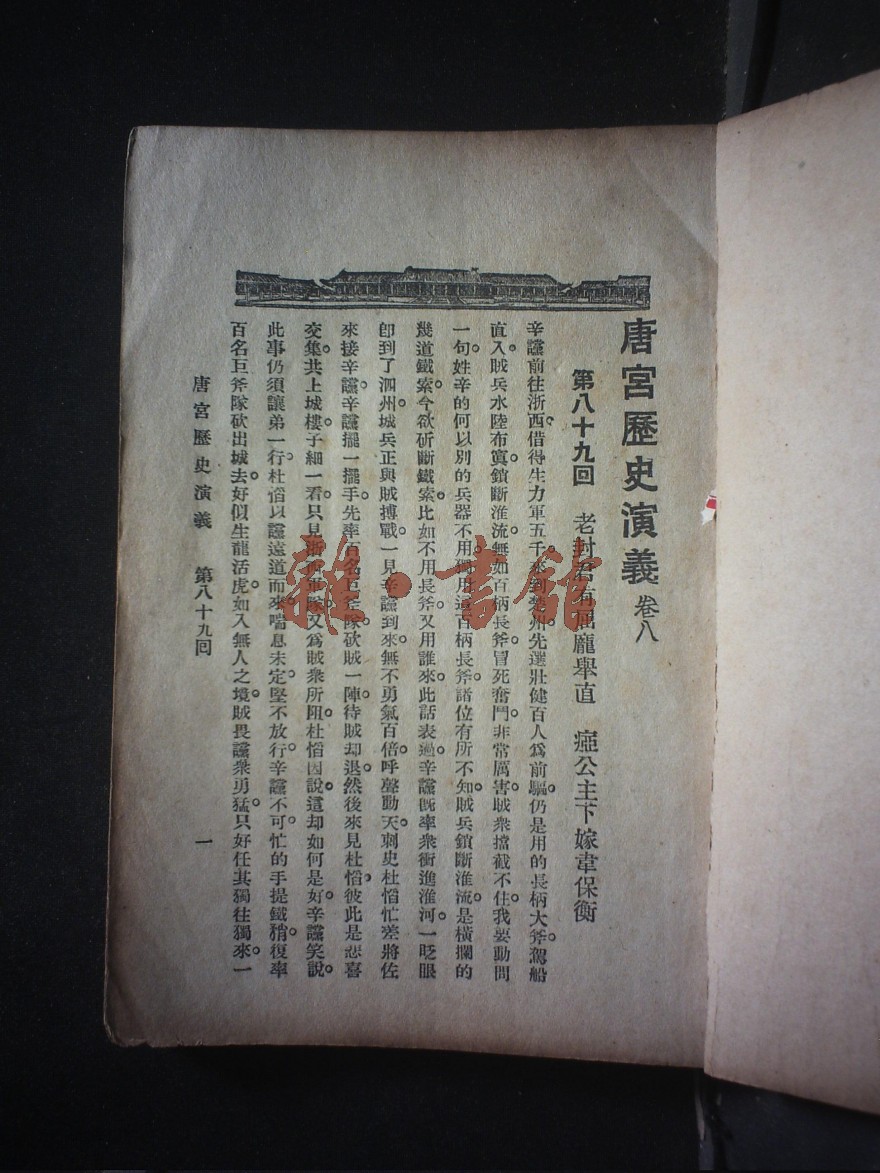 唐宮歷史演義 卷八
第八十九回 老封君有屈龐舉直 瘂公主下嫁韋保衡
辛讜前往浙西借得生力軍五千來到楚州。先選壯健百人爲前驅。仍是用的長柄大斧。駕船
直入。賊兵水陸布寘。鎖斷淮流。無如百柄長斧冒死奮鬥。非常厲害。賊衆擋截不住。我要動問
一句。姓辛的何以別的兵器不用。獨用這百柄長斧。諸位有所不知。賊兵鎖斷淮流。是橫攔的
幾道鐵索。今欲斫斷鐵索。比如不用長斧。又用誰來。此話表過。辛讜既率衆衝進淮河。一眨眼
卽到了泗州。城兵正與賊搏戰。一見辛讜到來。無不勇氣百倍。呼聲動天。刺史杜慆忙差將佐
來接辛讜。辛讜擺一擺手。先率百名巨斧隊砍賊一陣。待賊却退。然後來見杜慆。彼此是悲喜
交集。共上城樓。子細一看。只見浙西軍隊。又爲賊衆所阻。杜慆因說。這却如何是好。辛讜笑說。
此事仍須讓弟一行。杜慆以讜遠道而來。喘息未定。堅不放行。辛讜不可。忙的手提鐵矟。復率
百名巨斧隊砍出城去。好似生龍活虎。如入無人之境。賊畏讜衆勇猛。只好任其獨往獨來。一
唐宮歷史演義 第八十九回 一
雜·書館